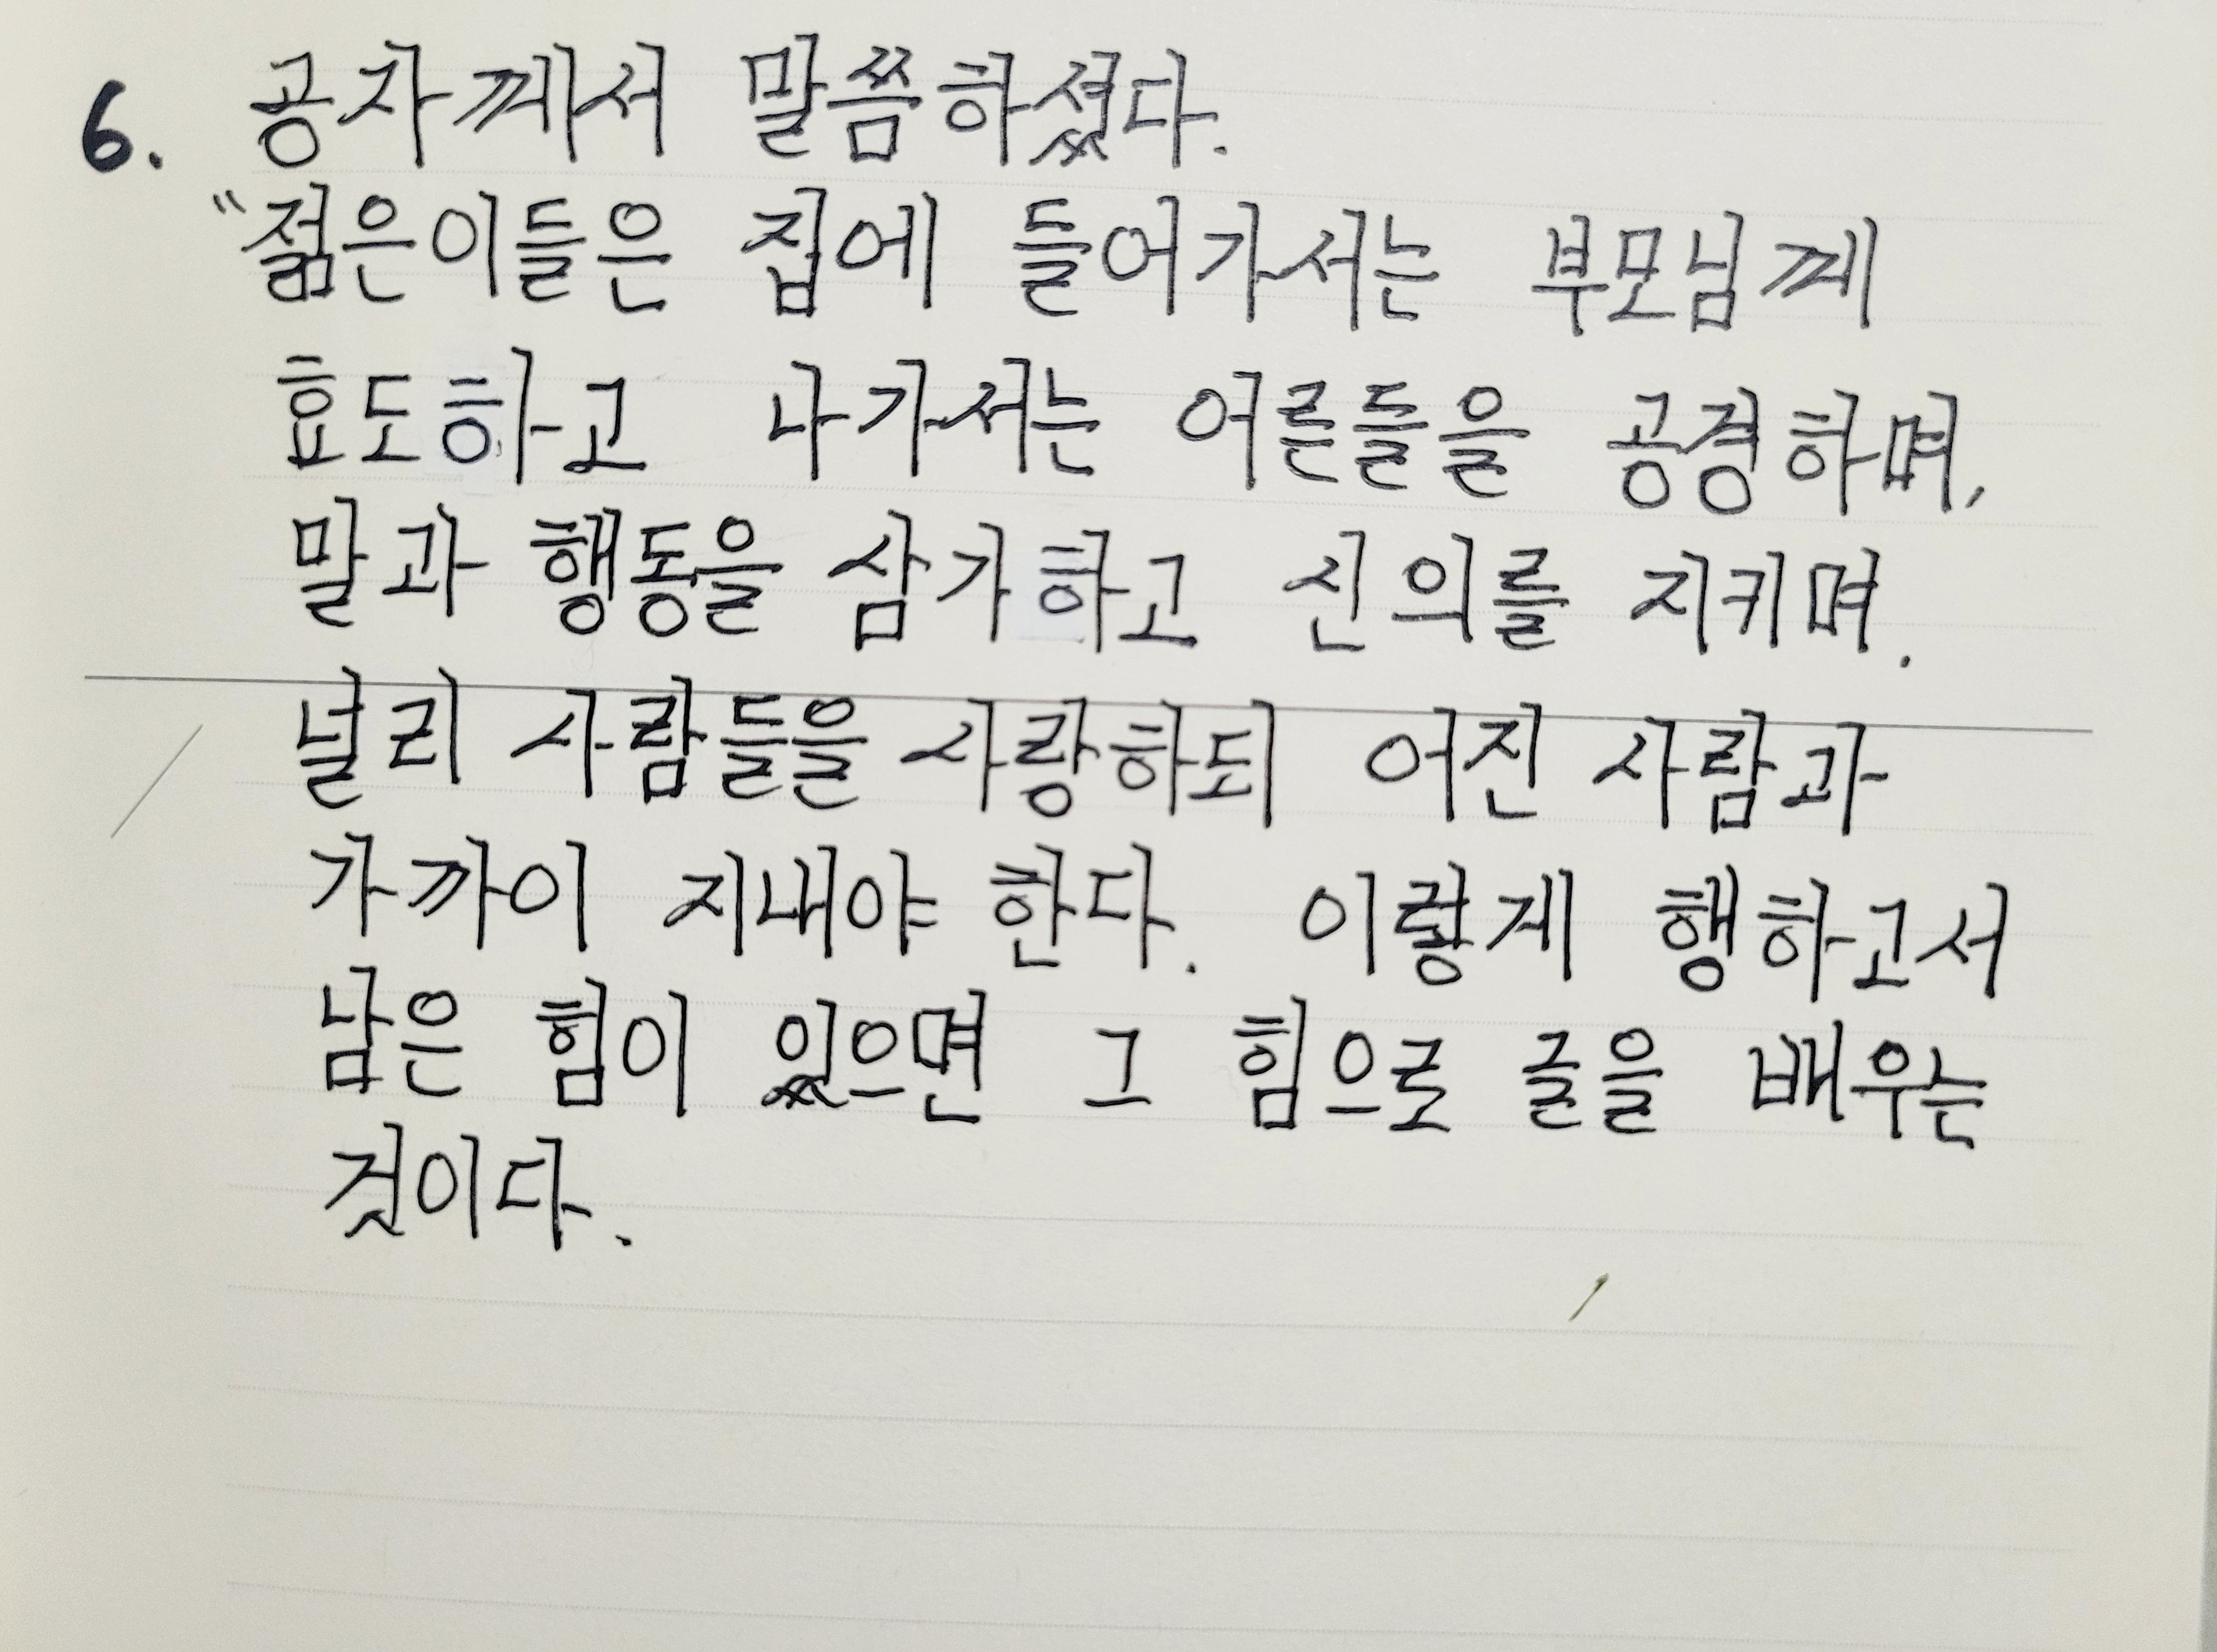 6. 공자께서 말씀하셨다.
“젊은이들은 집에 들어가서는 부모님께
효도하고 나가서는 어른들을 공경하며,
말과 행동을 삼가하고 신의를 지키며.
널리 사람들을 사랑하되 어진 사람과
가까이 지내야 한다. 이렇게 행하고서
남은 힘이 있으면 그 힘으로 글을 배우는
것이다.